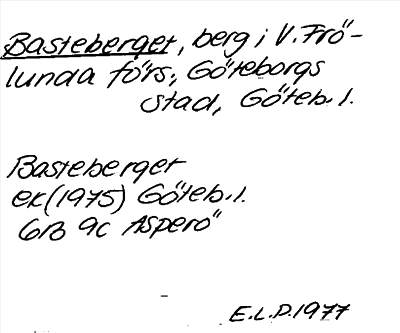 Basteberget, berg i V. Frö-
lunda förs., Göteborgs
stad, Göteb. l.
Basteberget
ek (1975) Göteb. l.
6B 9c Asperö
E.L.P. 1977